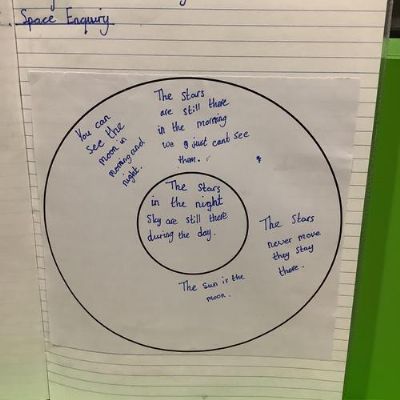 Space Enquiry
You can
see the
moon in
morning and
night.
The stars
are still there
in the morning
we just cant see
them.
The Stars
in the night
Sky are still there
during the day.
The Stars
never move
they stay
there.
The sun is the
moon.